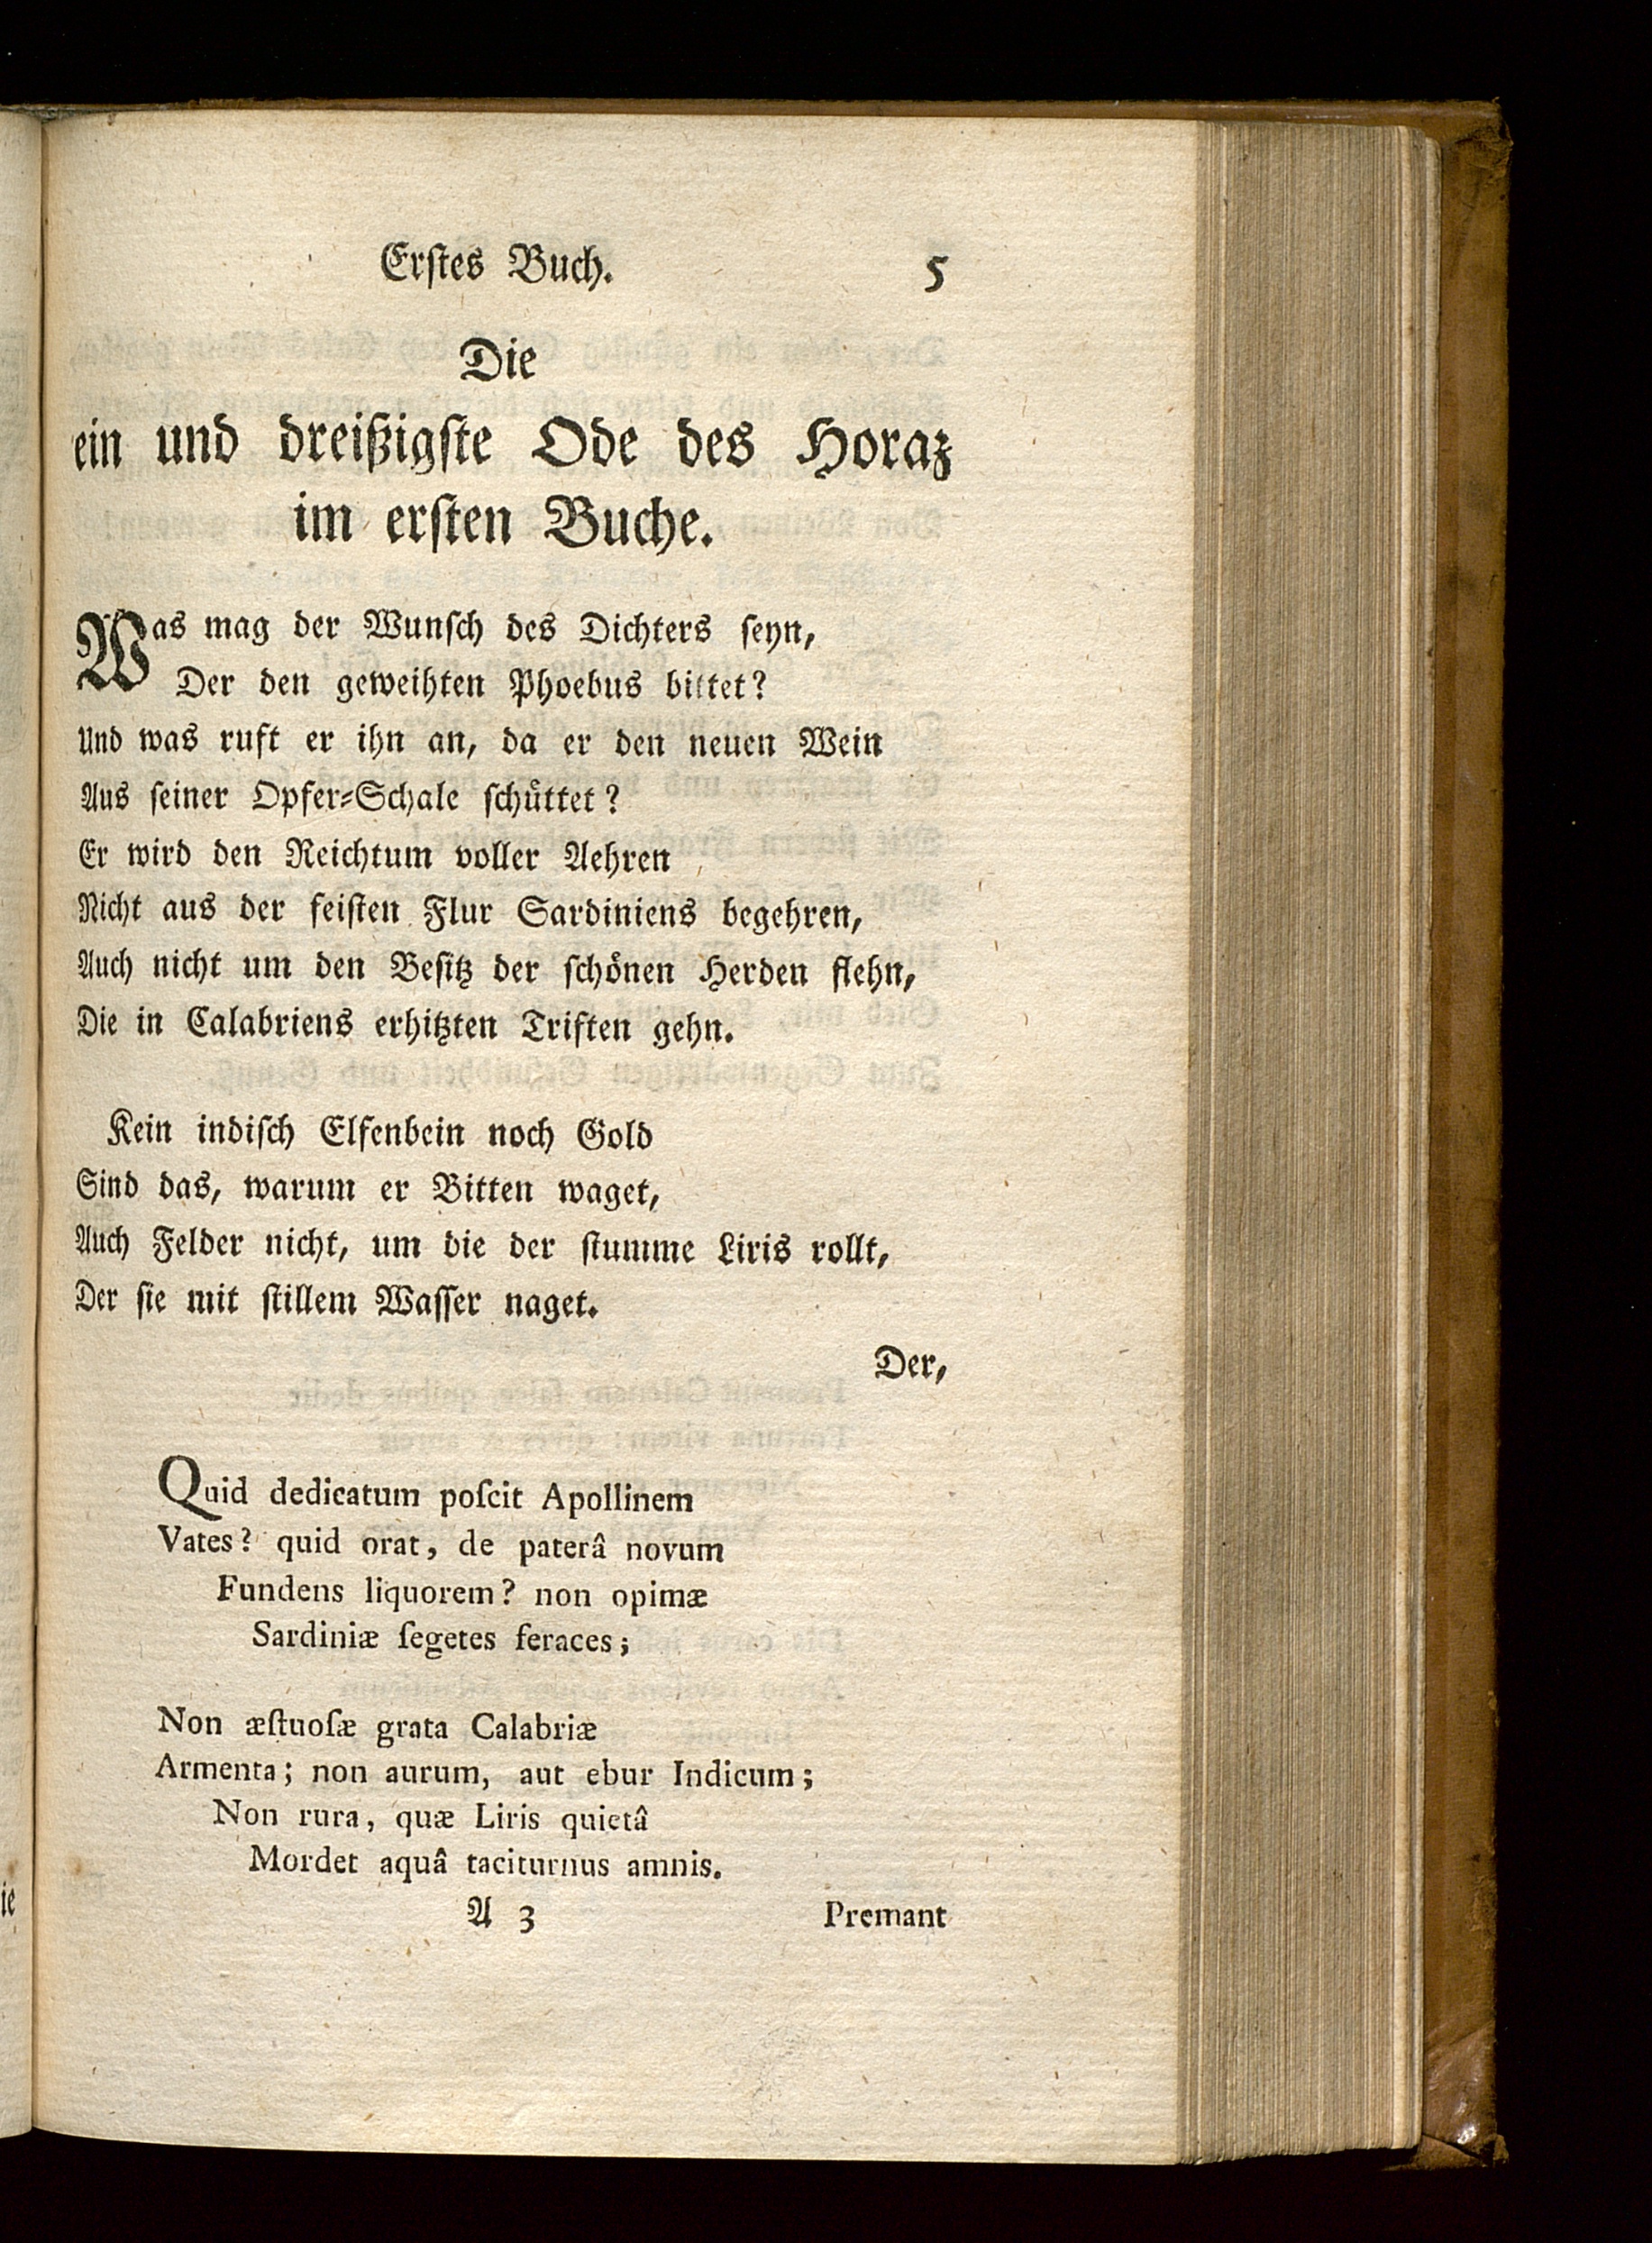 Erſtes Buch. 5
Die
ein und dreißigſte Ode des Horaz
im erſten Buche.
Was mag der Wunſch des Dichters ſeyn,
Der den geweihten Phoebus bittet?
Und was ruft er ihn an, da er den neuen Wein
Aus ſeiner Opfer-Schale ſchüttet?
Er wird den Reichtum voller Aehren
Nicht aus der feiſten Flur Sardiniens begehren,
Auch nicht um den Beſitz der ſchönen Herden flehn,
Die in Calabriens erhitzten Triften gehn.
Kein indiſch Elfenbein noch Gold
Sind das, warum er Bitten waget,
Auch Felder nicht, um die der ſtumme Liris rollt,
Der ſie mit ſtillem Waſſer naget.
Der,
Quid dedicatum poſcit Apollinem
Vates? quid orat, de paterâ novum
Fundens liquorem? non opimæ
Sardiniæ ſegetes feraces;
Non æſtuoſæ grata Calabriæ
Armenta; non aurum, aut ebur Indicum;
Non rura, quæ Liris quietâ
Mordet aquâ taciturnus amnis.
A 3 Premant
ie